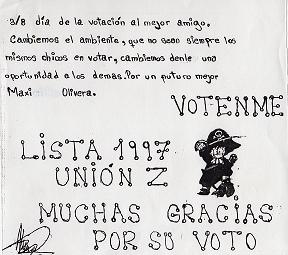 3/8 día de la votación al mejor amigo.
Cambiemos el ambiente, que no sean siempre los
mismos chicos en votar, cambiemos denle una
oportunidad a los demas. Por un futuro mejor
Maxi Olivera.
VOTENME
LISTA 1997
UNIÓN Z
MUCHAS GRACIAS
POR SU VOTO